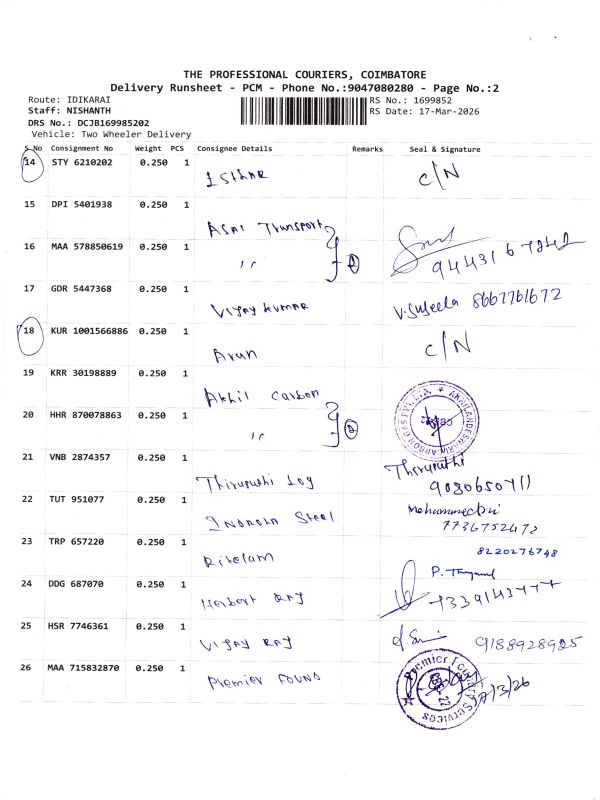 THE PROFESSIONAL COURIERS, COIMBATORE
Delivery Runsheet - PCM - Phone No.:9047080280 - Page No.:2
Route: IDIKARAI
RS No.: 1699852
Staff: NISHANTH
RS Date: 17-Mar-2026
DRS No.: DCJB169985202
Vehicle: Two Wheeler Delivery
S No Consignment No Weight PCS Consignee Details Remarks Seal & Signature
14 STY 6210202 0.250 1
ISTHAR C/N
15 DPI 5401938 0.250 1
ASAI Transport
16 MAA 578850619 0.250 1
,, 2
17 GDR 5447368 0.250 1
VIJAY KUMAR V.Suseela 8667761672
18 KUR 1001566886 0.250 1
Arun C/N
19 KRR 30198889 0.250 1
Akhil Carbon
20 HHR 870078863 0.250 1
,, 2
21 VNB 2874357 0.250 1
Thirupathi Log Thirupathi
22 TUT 951077 0.250 1
Steel
23 TRP 657220 0.250 1
8220276748
24 DDG 687070 0.250 1
Herbert RAJ
25 HSR 7746361 0.250 1
VIJAY RAJ 9188928925
26 MAA 715832870 0.250 1
Premier FOUND